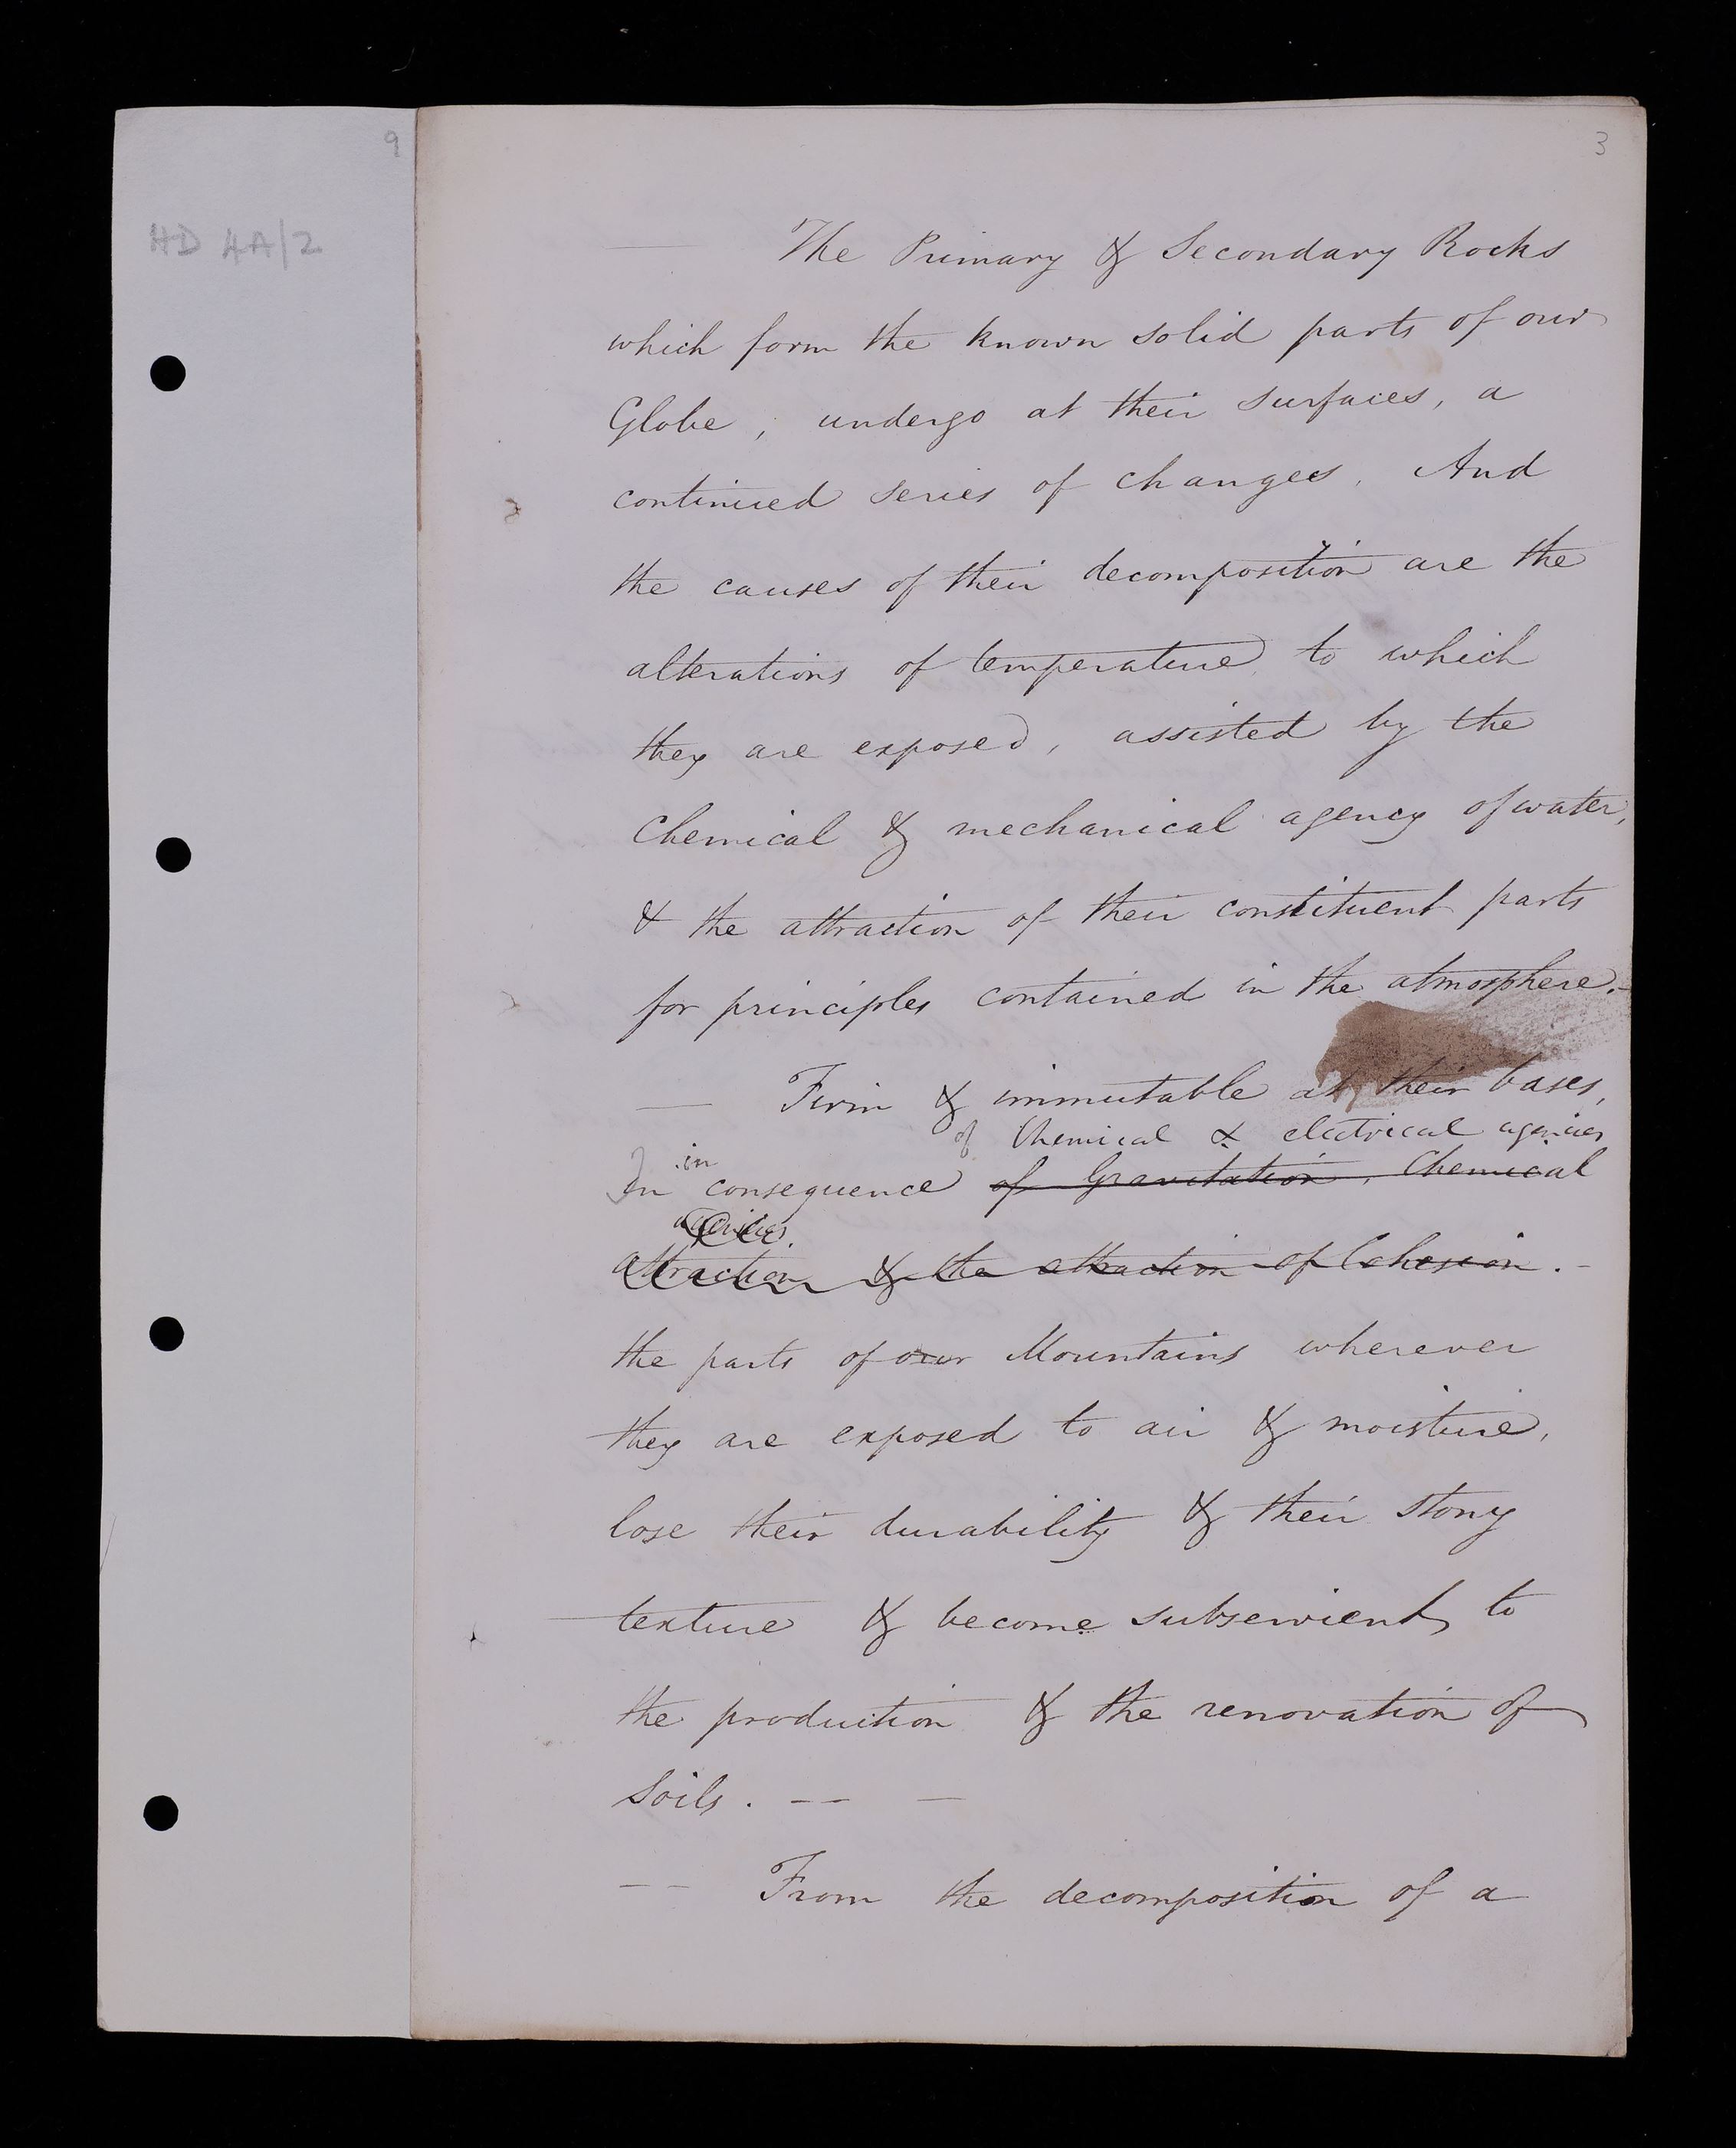 9
3
HD 4A/2
The Primary & Secondary Rocks
which form the known solid parts of our
Globe, undergo at their surfaces, a
continued series of changes. And
the causes of their decomposition are the
alterations of temperature to which
they are exposed, assisted by the
Chemical & mechanical agency of water,
& the attraction of their constituent parts
for principles contained in the atmosphere. -
— Firm & immutable at their bases,
of Chemical & electrical agencies
in
In consequence of Gravitation, Chemical
agencies.
attraction & the attraction of Cohesion. -
the parts of our Mountains wherever
they are exposed to air & moisture,
lose their durability & their stony
texture & become subservient to
the production & the renovation of
Soils. -- —
-- From the decomposition of a